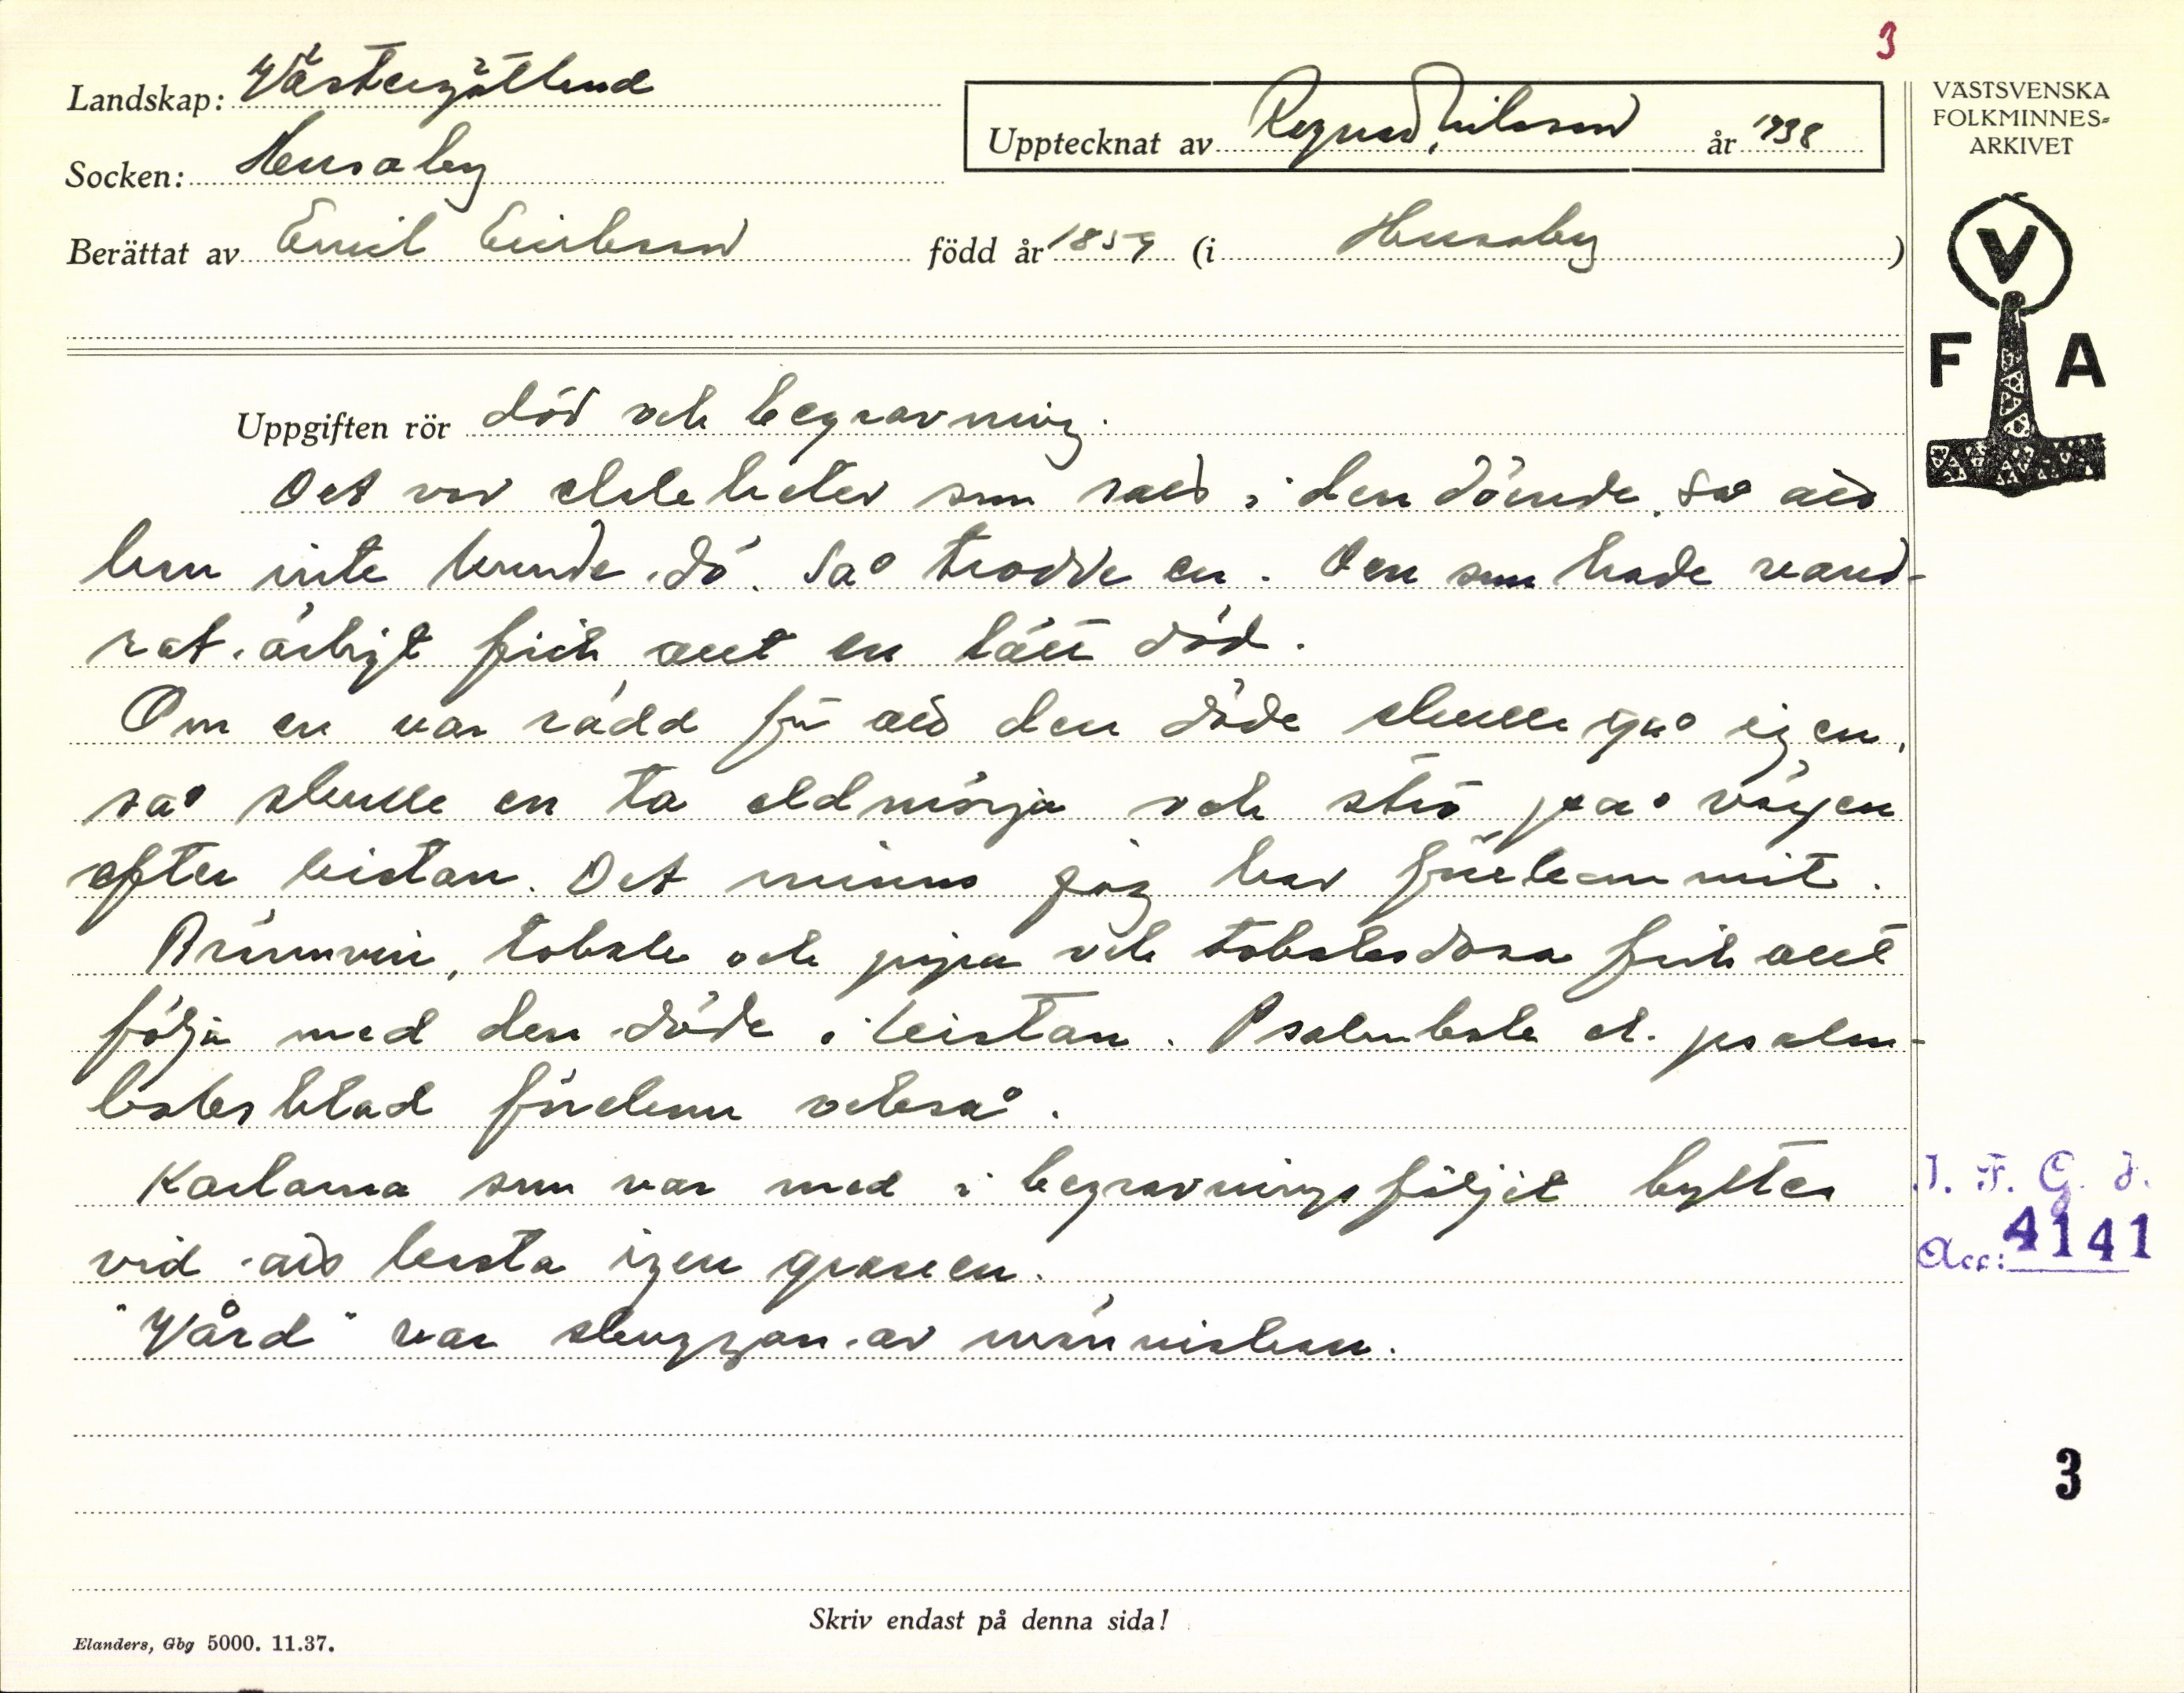 3
Landskap: Västergötland
Upptecknat av Ragnar Nilsson år 1938
Socken: Husaby
Berättat av Emil Eriksson född år 1859 (i Husaby)
VÄSTSVENSKA
FOLKMINNES-
ARKIVET
V
F A
Uppgiften rör död och begravning.
Det var elakheten som satt i den döende, så att
han inte kunde dö. Så trodde en. Den som hade vand-
rat ärligt fick allt en lätt död.
Om en var rädd för att den döde skulle gå igen,
så skulle en ta eldmörja och strö på vägen
efter kistan. Det minns jag har förekommit.
Brännvin, tobak och pipa och tobaksdosa fick allt
följa med den döde i kistan. Psalmbok el. psalm-
boksblad förekom också.
Karlarna som var med i begravningsföljet byttes
vid att kasta igen graven.
"Vård" var skuggan av människan.
I. F. G. H.
Acc: 4141
3
Skriv endast på denna sida!
Elanders, Gbg 5000. 11.37.